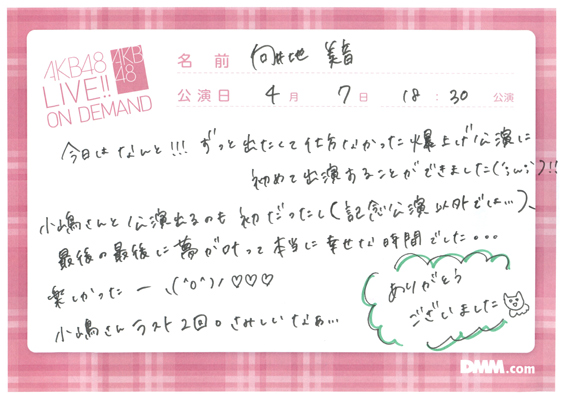 AKB48
LIVE!!
ON DEMAND
AKB
48
名前 向井地 美音
公演日 4月 7日 18:30 公演
今日はなんと!!! ずっと出たくて仕方なかった爆上げ公演に
初めて出演することができました(;ω;)!!
小嶋さんと公演出るのも初だったし(記念公演以外では...)、
最後の最後に夢が叶って本当に幸せな時間でした...
楽しかったー\(^o^)/♡♡♡
小嶋さんラスト2回。さみしいなぁ...
ありがとう
ございました
DMM.com